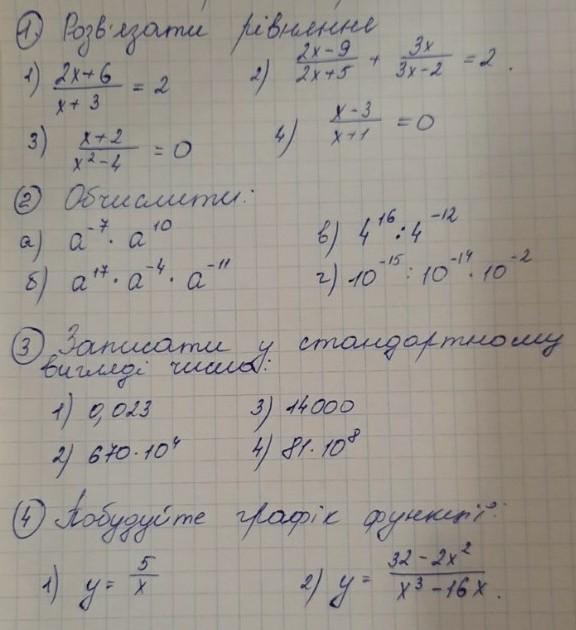 ① Розв'язати рівняння
1) (2x+6)/(x+3) = 2   2) (2x-9)/(2x+5) + 3x/(3x-2) = 2.
3) (x+2)/(x²-4) = 0   4) (x-3)/(x+1) = 0
② Обчислити:
а) a⁻⁷ · a¹⁰   в) 4¹⁶ : 4⁻¹²
б) a¹⁷ · a⁻⁴ · a⁻¹¹   г) 10⁻¹⁵ : 10⁻¹⁴ · 10⁻²
③ Записати у стандартному
вигляді числа:
1) 0,023   3) 14000
2) 670·10⁴   4) 81·10⁸
④ Побудуйте графік функції:
1) y = 5/x   2) y = (32-2x²)/(x³-16x).